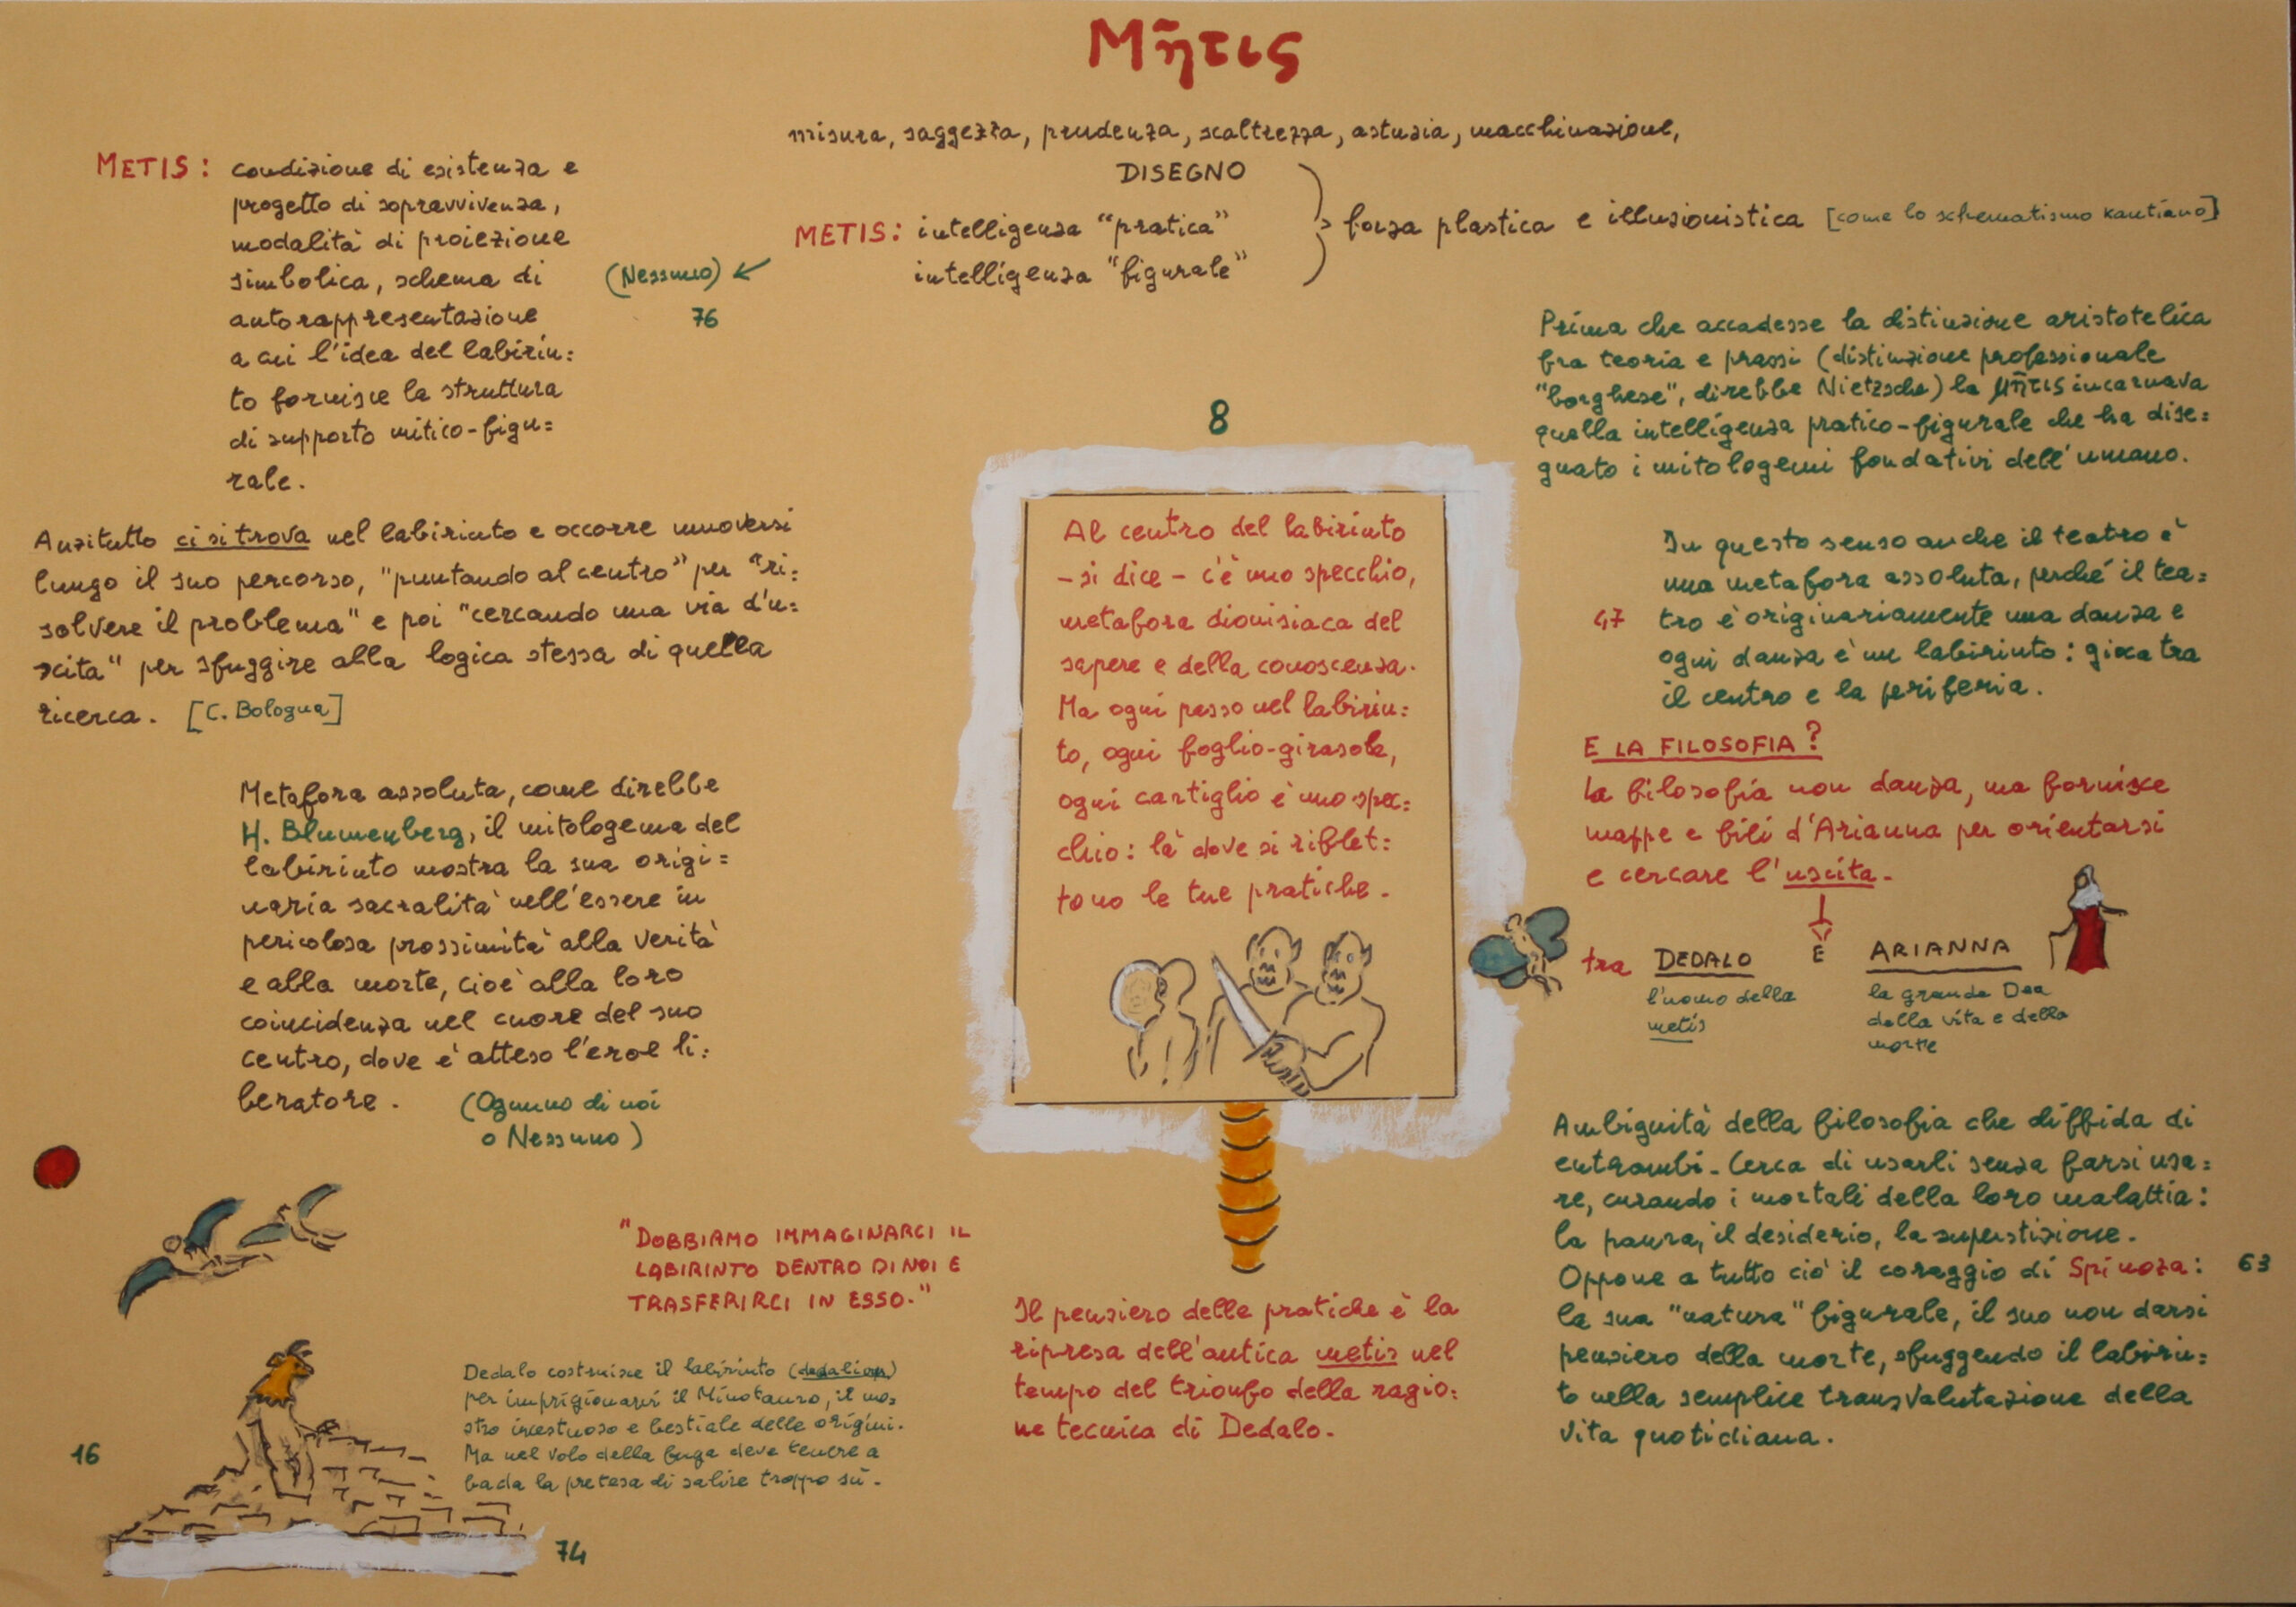 Μῆτις
misura, saggezza, prudenza, scaltrezza, astuzia, macchinazione,
DISEGNO
METIS: intelligenza "pratica"
intelligenza "figurale"
forza plastica e illusionistica [come lo schematismo kantiano]
(Nessuno)
76
METIS: condizione di esistenza e
progetto di sopravvivenza,
modalità di proiezione
simbolica, schema di
autorappresentazione
a cui l'idea del labirin=
to fornisce la struttura
di supporto mitico-figu=
rale.
Anzitutto ci si trova nel labirinto e occorre muoversi
lungo il suo percorso, "puntando al centro" per "ri=
solvere il problema" e poi "cercando una via d'u=
scita" per sfuggire alla logica stessa di quella
ricerca. [C. Bologna]
Metafora assoluta, come direbbe
H. Blumenberg, il mitologema del
labirinto mostra la sua origi=
naria sacralità nell'essere in
pericolosa prossimità alla verità
e alla morte, cioè alla loro
coincidenza nel cuore del suo
centro, dove è atteso l'eroe li=
beratore.
(Ognuno di noi
o Nessuno)
"DOBBIAMO IMMAGINARCI IL
LABIRINTO DENTRO DI NOI E
TRASFERIRCI IN ESSO."
Dedalo costruisce il labirinto (dedalion)
per imprigionarvi il Minotauro, il mo=
stro incestuoso e bestiale delle origini.
Ma nel volo della fuga deve tenere a
bada la pretesa di salire troppo su.
16
74
8
Al centro del labirinto
– si dice – c'è uno specchio,
metafora dionisiaca del
sapere e della conoscenza.
Ma ogni passo nel labirin=
to, ogni foglio-girasole,
ogni cartiglio è uno spec=
chio: là dove si riflet=
tono le tue pratiche.
Il pensiero delle pratiche è la
ripresa dell'antica metis nel
tempo del trionfo della ragio=
ne tecnica di Dedalo.
Prima che accadesse la distinzione aristotelica
fra teoria e prassi (distinzione professionale
"borghese", direbbe Nietzsche) la μῆτις incarnava
quella intelligenza pratico-figurale che ha dise=
gnato i mitologemi fondativi dell'umano.
In questo senso anche il teatro è
una metafora assoluta, perché il tea=
47 tro è originariamente una danza e
ogni danza è un labirinto: gioca tra
il centro e la periferia.
E LA FILOSOFIA?
La filosofia non danza, ma fornisce
mappe e fili d'Arianna per orientarsi
e cercare l'uscita.
tra DEDALO E ARIANNA
l'uomo della
metis
la grande Dea
della vita e della
morte
Ambiguità della filosofia che diffida di
entrambi. Cerca di usarli senza farsi usa=
re, curando i mortali della loro malattia:
la paura, il desiderio, la superstizione.
Oppone a tutto ciò il coraggio di Spinoza: 63
la sua "natura" figurale, il suo non darsi
pensiero della morte, sfuggendo il labirin=
to nella semplice transvalutazione della
vita quotidiana.